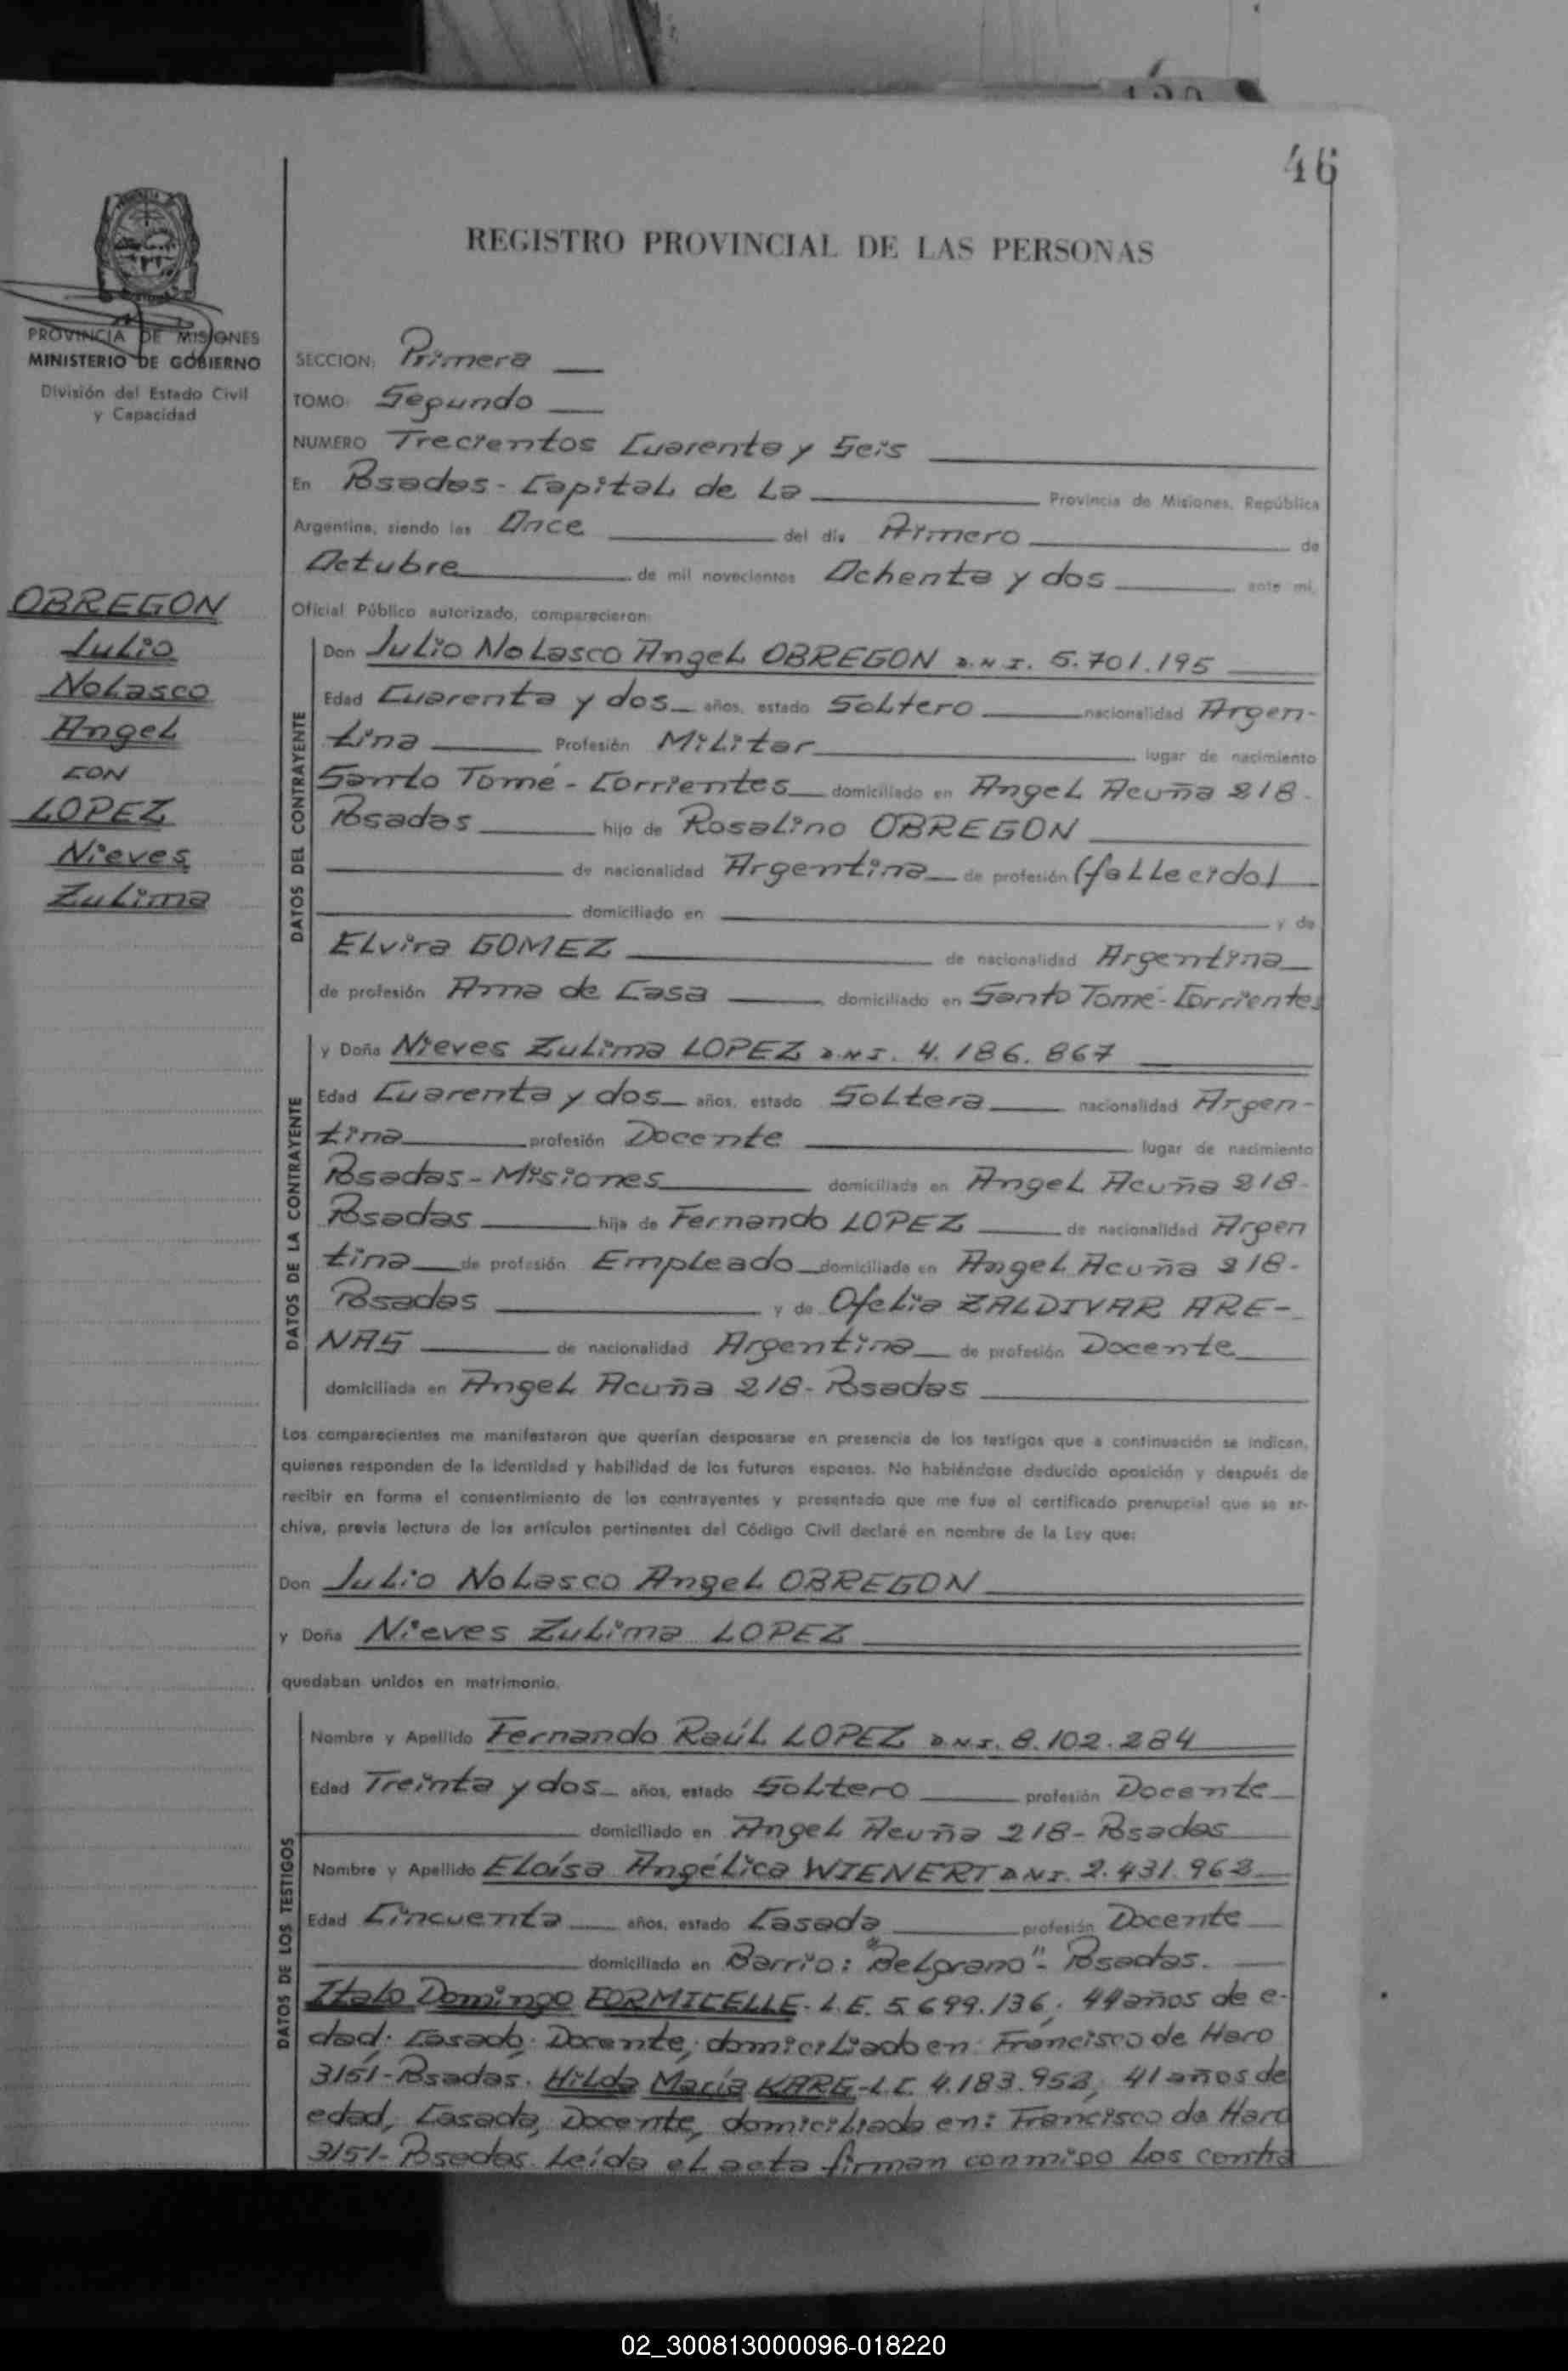 46
REGISTRO PROVINCIAL DE LAS PERSONAS
PROVINCIA DE MISIONES
MINISTERIO DE GOBIERNO
División del Estado Civil
y Capacidad
SECCION: Primera
TOMO: Segundo
NUMERO Trecientos Cuarenta y Seis
En Posadas - Capital de La Provincia de Misiones, República
Argentina, siendo las Once del día Primero de
Octubre de mil novecientos Ochenta y dos ante mi,
Oficial Público autorizado, comparecieron:
OBREGON
Julio
Nolasco
Angel
CON
LOPEZ
Nieves
Zulima
DATOS DEL CONTRAYENTE
Don Julio Nolasco Angel OBREGON D.N.I. 5.701.195
Edad Cuarenta y dos años, estado Soltero nacionalidad Argen-
tina Profesión Militar lugar de nacimiento
Santo Tomé - Corrientes domiciliado en Angel Acuña 218-
Posadas hijo de Rosalino OBREGON
de nacionalidad Argentina de profesión (fallecido)
domiciliado en y de
Elvira GOMEZ de nacionalidad Argentina
de profesión Ama de Casa domiciliado en Santo Tomé - Corrientes
DATOS DE LA CONTRAYENTE
y Doña Nieves Zulima LOPEZ D.N.I. 4.186.867
Edad Cuarenta y dos años, estado Soltera nacionalidad Argen-
tina profesión Docente lugar de nacimiento
Posadas - Misiones domiciliada en Angel Acuña 218-
Posadas hija de Fernando LOPEZ de nacionalidad Argen
tina de profesión Empleado domiciliado en Angel Acuña 218-
Posadas y de Ofelia ZALDIVAR ARE-
NAS de nacionalidad Argentina de profesión Docente
domiciliada en Angel Acuña 218- Posadas
Los comparecientes me manifestaron que querían desposarse en presencia de los testigos que a continuación se indican,
quienes responden de la identidad y habilidad de los futuros esposos. No habiéndose deducido oposición y después de
recibir en forma el consentimiento de los contrayentes y presentado que me fue el certificado prenupcial que se ar-
chiva, previa lectura de los artículos pertinentes del Código Civil declaré en nombre de la Ley que:
Don Julio Nolasco Angel OBREGON
y Doña Nieves Zulima LOPEZ
quedaban unidos en matrimonio.
DATOS DE LOS TESTIGOS
Nombre y Apellido Fernando Raúl LOPEZ D.N.I. 8.102.284
Edad Treinta y dos años, estado Soltero profesión Docente
domiciliado en Angel Acuña 218- Posadas
Nombre y Apellido Eloísa Angélica WIENERT D.N.I. 2.431.963
Edad Cincuenta años, estado Casada profesión Docente
domiciliado en Barrio: "Belgrano"- Posadas.
Italo Domingo FORMICELLE- L.E. 5.699.136, 44 años de e-
dad; Casado; Docente; domiciliado en: Francisco de Haro
3151-Posadas. Hilda María KARE-L.C. 4.183.953, 41 años de
edad, Casada, Docente, domiciliada en: Francisco de Haro
3151- Posadas. Leída el acta firman conmigo los contra
02_300813000096-018220